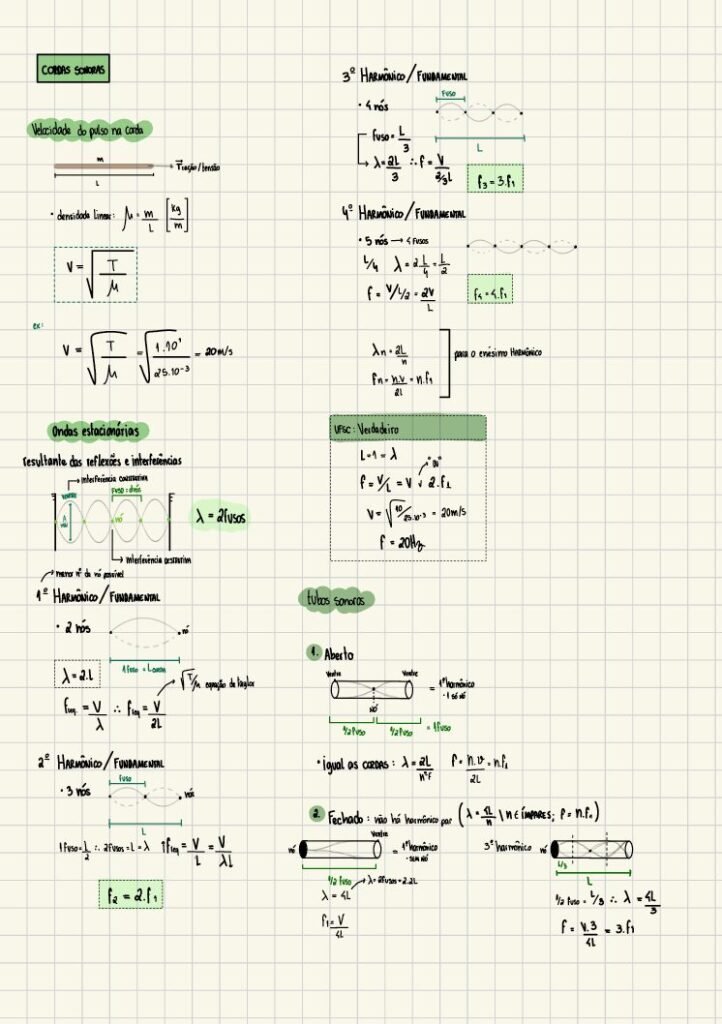 CORDAS SONORAS
Velocidade do pulso na corda
m
Tração/tensão
L
• densidade linear: μ = m/L [kg/m]
V = √(T/μ)
ex:
V = √(T/μ) = √(1.10¹/25.10⁻³) = 20m/s
Ondas estacionárias
resultante das reflexões e interferências
→ Interferência construtiva
ventre
nó
λ = 2fusos
→ Interferência destrutiva
menor nº de nó possível
1º HARMÔNICO/FUNDAMENTAL
• 2 nós
nó
1 fuso = Lcorda
λ = 2.L
√T/μ equação de taylor
freq = V/λ ∴ freq = V/2L
2º HARMÔNICO/FUNDAMENTAL
fuso
• 3 nós
nós
L
1 fuso = L/2 ∴ 2fusos = L = λ
freq = V/L = V/λL
f₂ = 2.f₁
3º HARMÔNICO/FUNDAMENTAL
fuso
• 4 nós
L
fuso = L/3
→ λ = 2L/3 ∴ f = V/2/3L
f₃ = 3.f₁
4º HARMÔNICO/FUNDAMENTAL
• 5 nós → 4 fusos
L/4 λ = 2L/4 = L/2
f = V/L/2 = 2V/L
f₄ = 4.f₁
λn = 2L/n
para o enésimo HARMÔNICO
fn = n.v/2L = n.f₁
UFSC: Verdadeiro
L = 1 = λ
"ou"
f = V/L = V v 2.f₁
V = √10/25.10⁻³ = 20m/s
f = 20Hz
tubos sonoros
1. Aberto
Ventre Ventre
= 1º harmônico
• 1 só nó
Nó
1/2 fuso 1/2 fuso = 1 fuso
• igual as cordas: λ = 2L/nºf f = n.v/2L = n.f₁
2. Fechado: não há harmônico par (λ = 4L/n \ n ∈ ímpares; f = n.f₁)
Ventre
nó
= 1º harmônico
• sem nó
1/2 fuso
→ λ = 2fusos = 2.2L
λ = 4L
f₁ = V/4L
3º harmônico
nó
L/3
L
1/2 fuso = L/3 ∴ λ = 4L/3
f = V.3/4L = 3.f₁